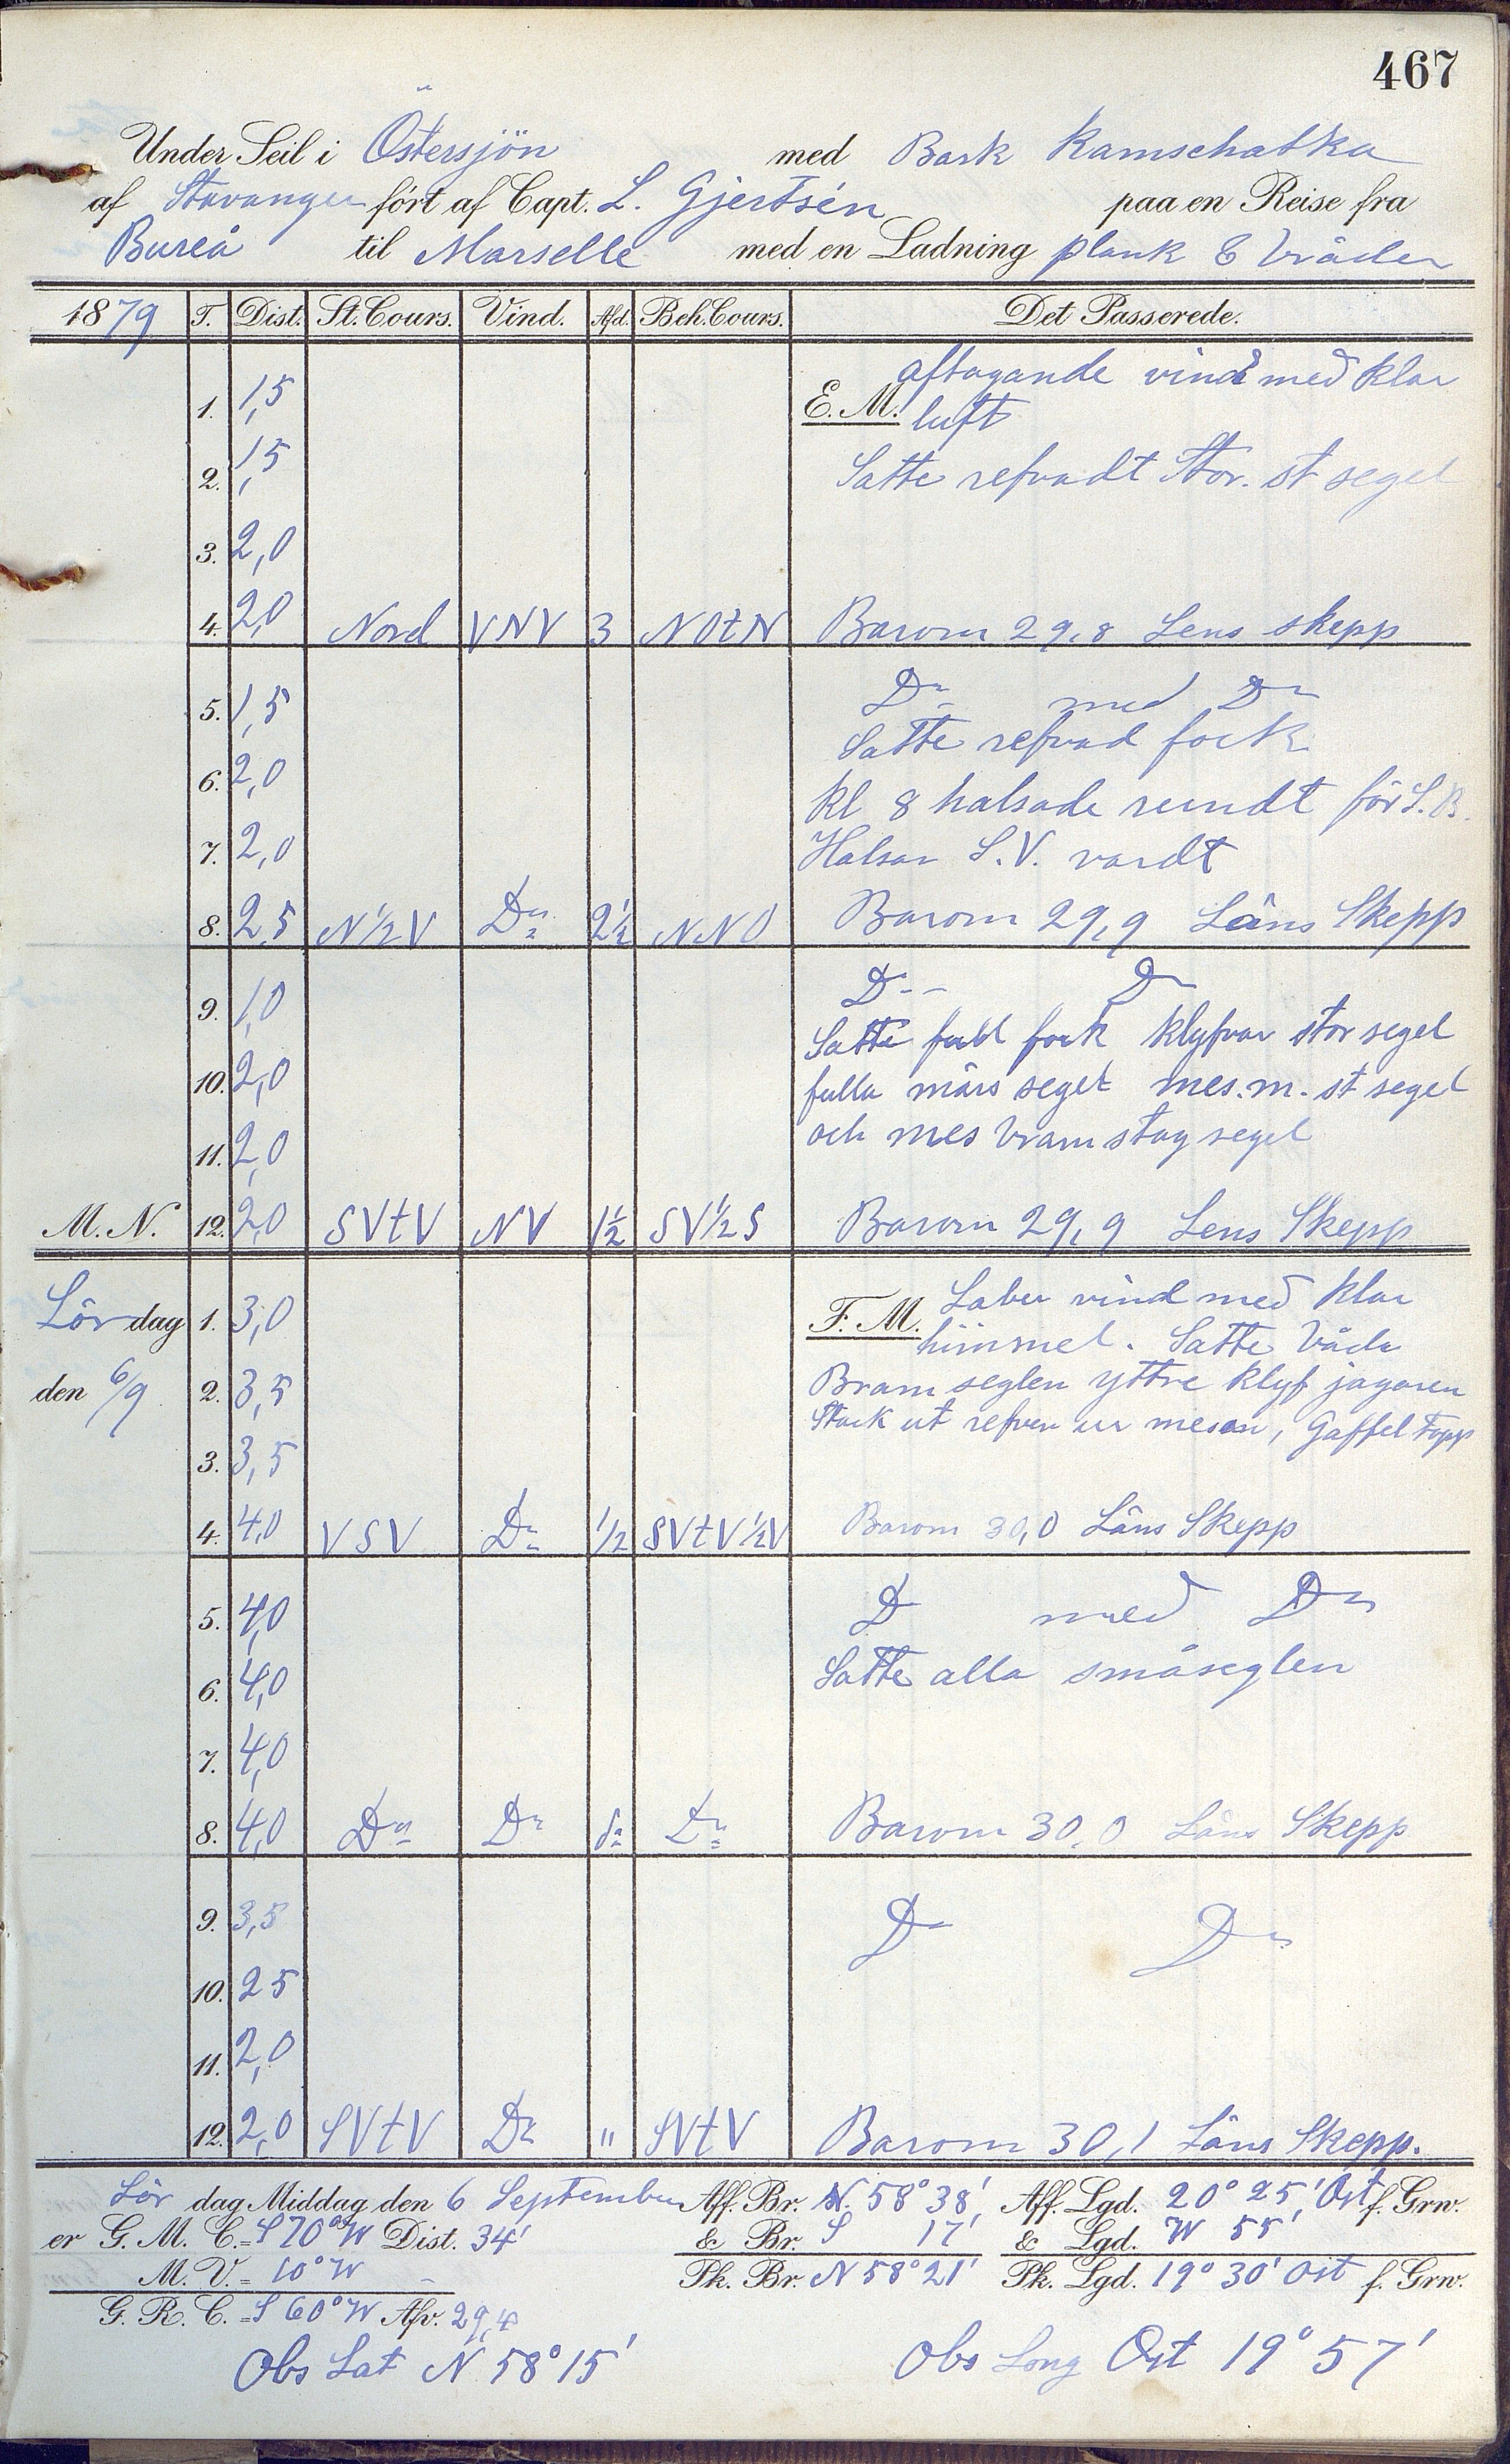 467
Under Seil i Östersjön med Bark Kamschatka
af Stavanger ført af Capt. L. Gjertsén paa en Reise fra
Bureå til Marselle med en Ladning plank & bräder
1879 T. Dist. St. Cours. Vind. Afd. Beh. Cours. Det Passerede.
aftagande vind med klar
1. 1,5 E. M. luft
2. 1,5 Satte refvadt Stor. st segel
3. 2,0
4. 2,0 Nord VNV 3 NOtN Barom 29,8 Lens skepp
5. 1,5 Do med Do
Satte refvad fock
6. 2,0
kl 8 halsade rundt för S. B.
7. 2,0 Halsar S. V. vardt
8. 2,5 N½V Do 2½ NNO Barom 29,9 Läns Skepp
9. 1,0 Do Do
Satte full fock klyfvar stor segel
10. 2,0 fulla märs segel mes. m. st segel
11. 2,0 och mes bram stag segel
M. N. 12. 2,0 SVtV NV 1½ SV½S Barom 29,9 Lens Skepp
Lör dag 1. 3,0 F. M. Laber vind med klar
himmel. Satte båda
den 6/9 2. 3,5 Bram seglen yttre klyf jagaren
Stack ut refven ur mesan, Gaffel Topp
3. 3,5
4. 4,0 VSV Do ½ SVtV½V Barom 30,0 Läns Skepp
5. 4,0 Do med Do
6. 4,0 Satte alla småseglen
7. 4,0
8. 4,0 Do Do do Do Barom 30,0 Läns Skepp
9. 3,5 Do Do
10. 25
11. 2,0
12. 2,0 SVtV Do " SVtV Barom 30,1 Läns Skepp.
Lör dag Middag den 6 September Aff. Br. N. 58° 38', Aff. Lgd. 20° 25', Ost f. Grw.
er G. M. C. = S 70° W Dist. 34' & Br. S 17' & Lgd. W 55'
M. V. = 10° W Pk. Br. N 58° 21' Pk. Lgd. 19° 30' Ost f. Grw.
G. R. C. = S 60° W Afv. 29,4
Obs Lat N 58° 15' Obs Long Ost 19° 57'